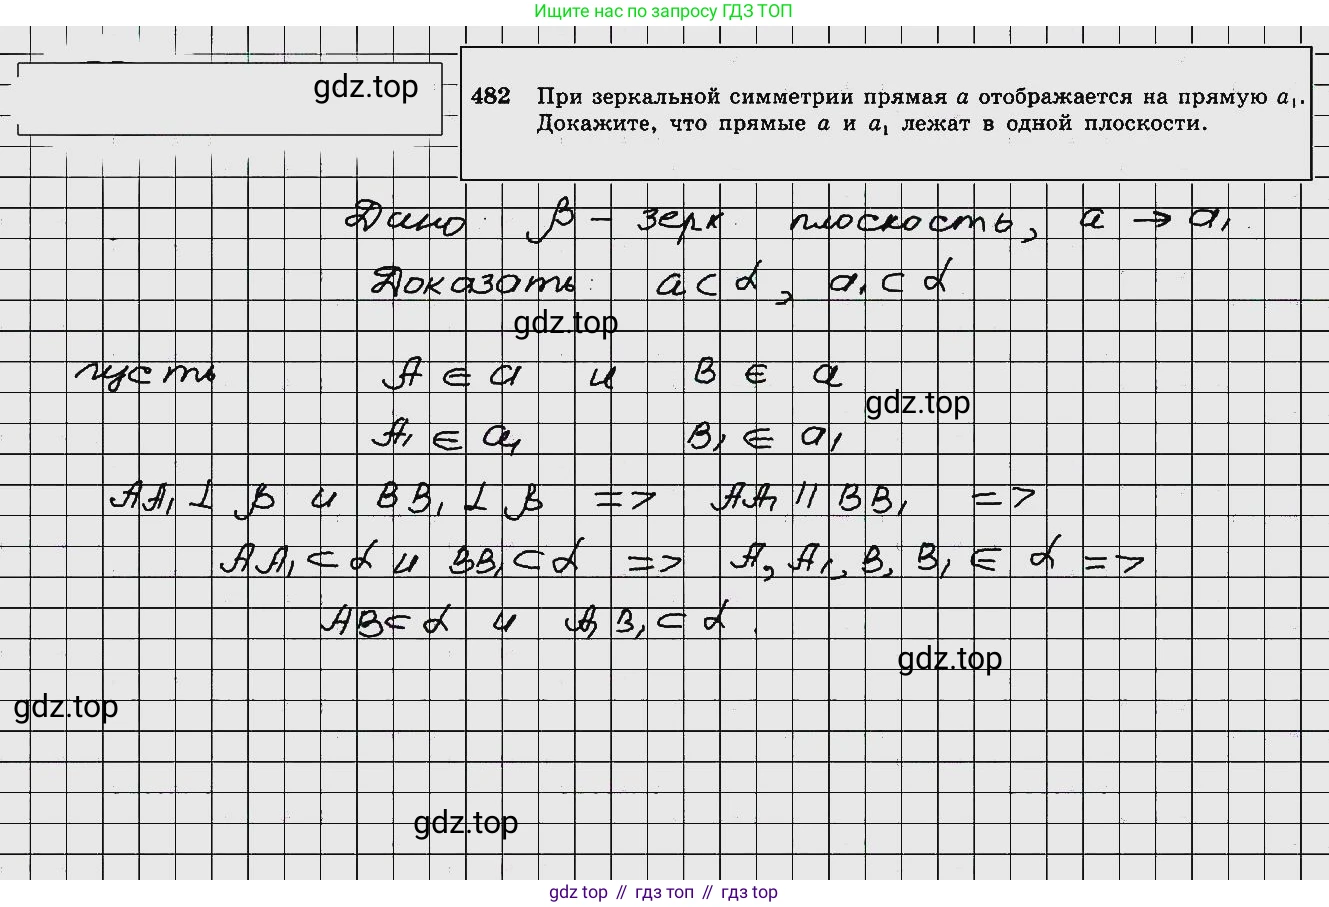 Ищите нас по запросу ГДЗ ТОП
gdz.top
482 При зеркальной симметрии прямая a отображается на прямую a₁.
Докажите, что прямые a и a₁ лежат в одной плоскости.
Дано β – зерк плоскость, a → a₁
Доказать: a ⊂ α, a₁ ⊂ α
gdz.top
пусть A ∈ a и B ∈ a
gdz.top
A₁ ∈ a₁ B₁ ∈ a₁
AA₁ ⊥ β и BB₁ ⊥ β => AA₁ || BB₁ =>
AA₁ ⊂ α и BB₁ ⊂ α => A, A₁, B, B₁ ∈ α =>
AB ⊂ α и A₁B₁ ⊂ α.
gdz.top
gdz.top
gdz.top
gdz top // гдз топ // гдз top